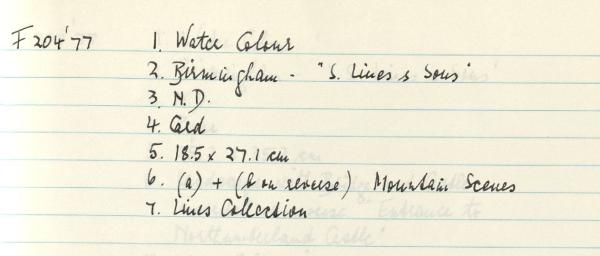 F204'77 1. Water Colour
2. Birmingham - "S. Lines & Sons"
3. N.D.
4. Card
5. 18.5 x 27.1 cm
6. (a) + (b on reverse) Mountain Scenes
7. Lines Collection